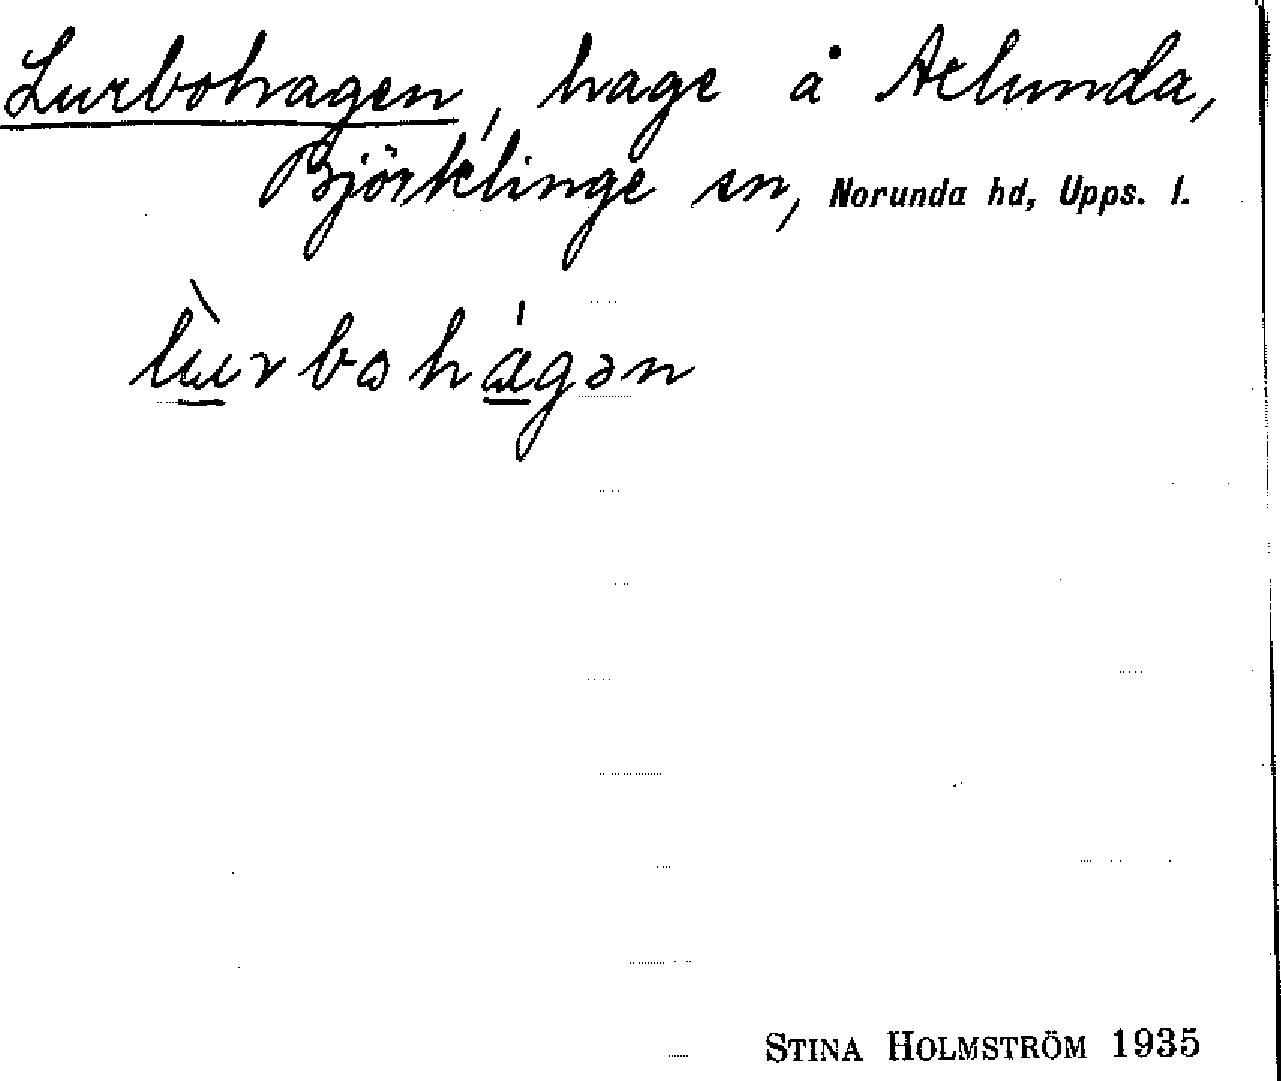 Lurbohagen, hage å Axlunda,
Björklinge sn, Norunda hd, Upps. l.
lù̲rbohá̲gən
STINA HOLMSTRÖM 1935